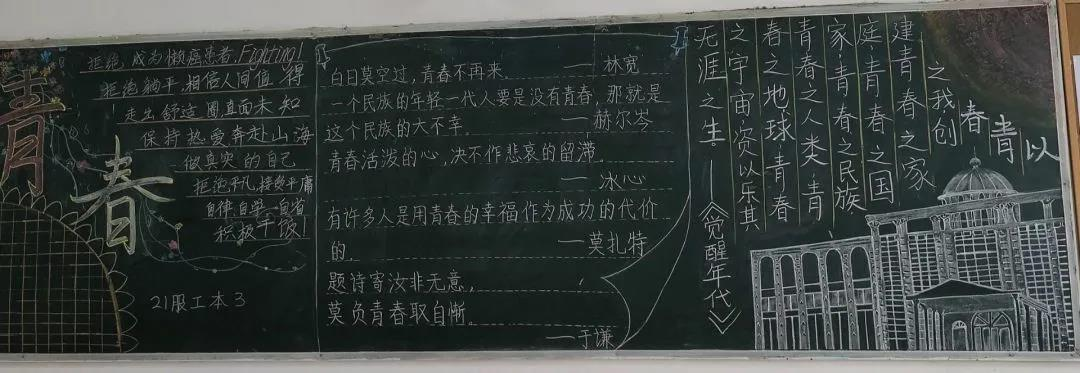 青春
拒绝成为懒癌患者 Fighting!
拒绝躺平,相信人间值得
走出舒适圈直面未知
保持热爱奔赴山海
做真实的自己
拒绝平凡,接受平庸
自律 自学 自省
积极干饭!
21服工本3
白日莫空过,青春不再来. ——林宽
一个民族的年轻一代人要是没有青春,那就是
这个民族的大不幸. ——赫尔岑
青春活泼的心,决不作悲哀的留滞.
——冰心
有许多人是用青春的幸福作为成功的代价
的. ——莫扎特
题诗寄汝非无意,
莫负青春取自惭。
——于谦
以青春之我创
建青春之家
庭,青春之国
家,青春之民族,
青春之人类,青
春之地球,青春
之宇宙,资以乐其
无涯之生——《觉醒年代》